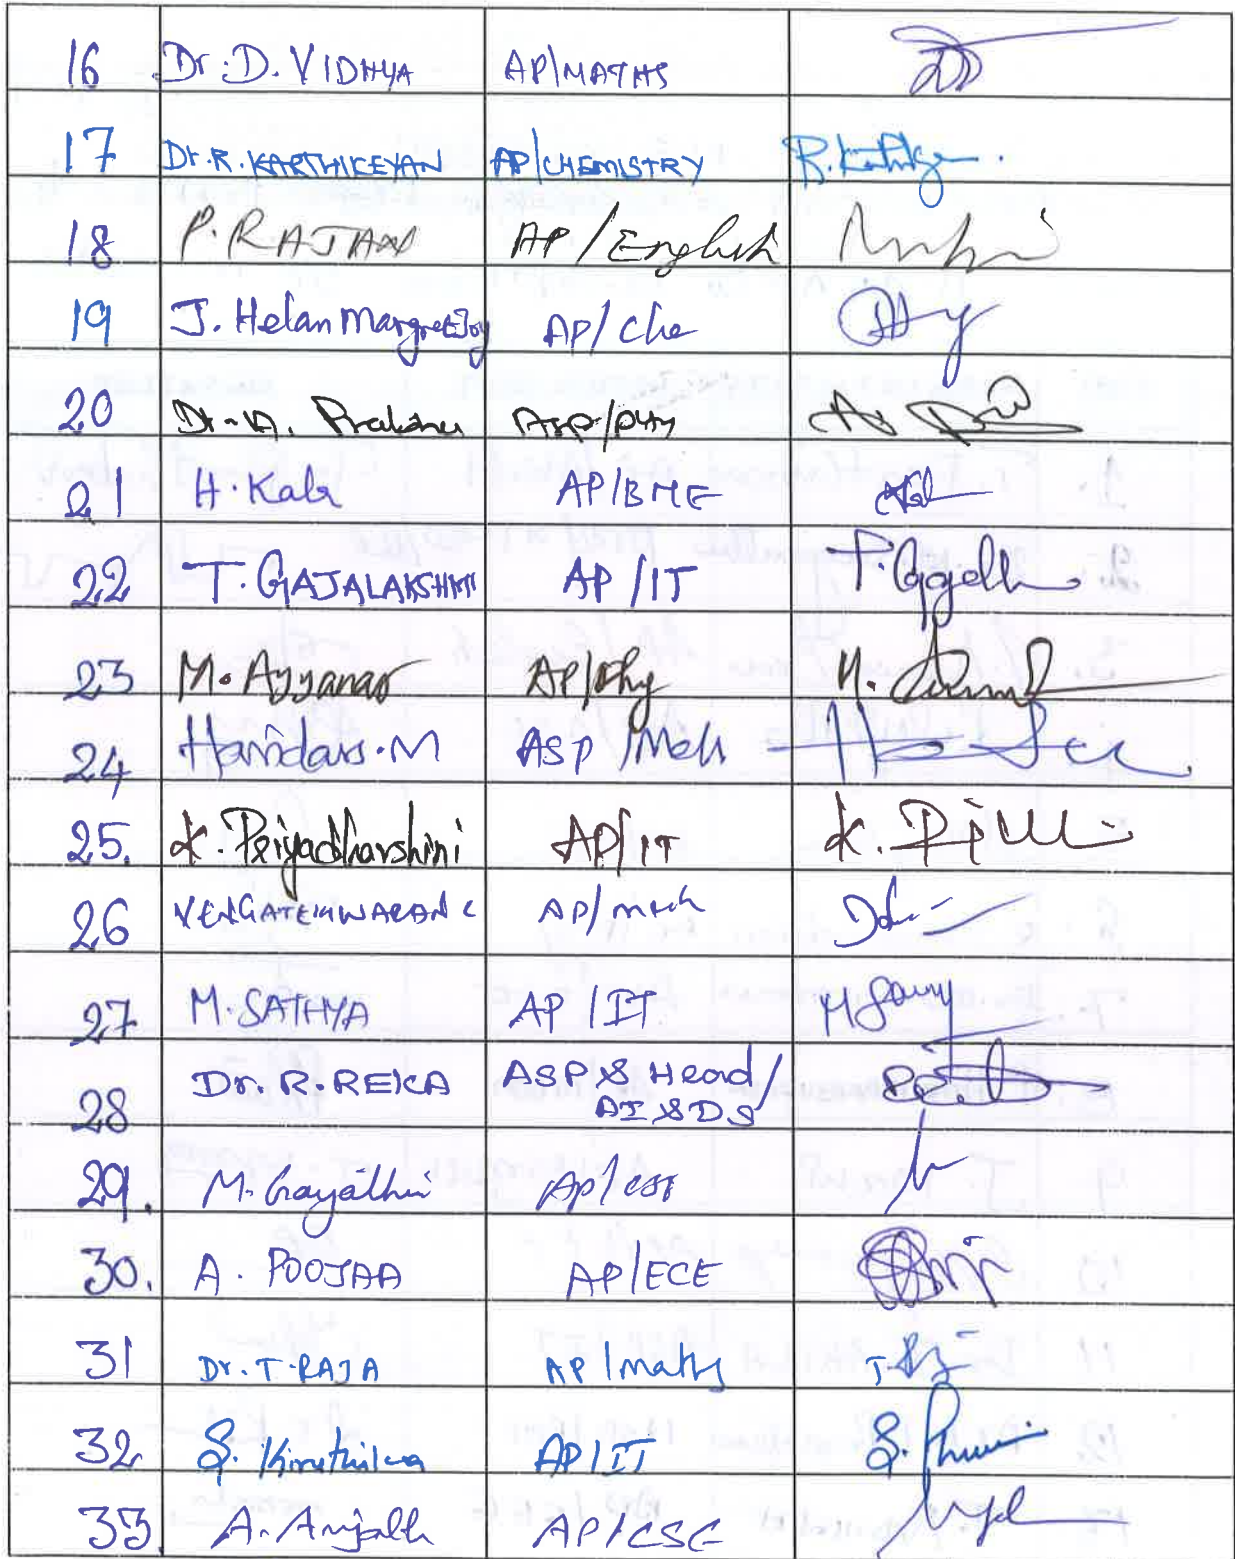 16 Dr. D. VIDHYA AP/MATHS
17 Dr. R. KARTHIKEYAN AP/CHEMISTRY R. Karthikeyan
18 P. RAJAN AP/English
19 J. Helan Margret Joy AP/Che
20 Dr. A. Prakash ASP/PHY
21 H. Kala AP/BME
22 T. GAJALAKSHMI AP/IT T. Gajalakshmi
23 M. Ayyanar AP/Phy
24 Haridass.M ASP/Mech
25. K. Priyadharshini AP/IT
26 VENGATESHWARAN C AP/mech
27 M. SATHYA AP/IT
28 Dr. R. REKA ASP & Head/
AI & DS
29. M. Gayathri AP/CSE
30. A. POOJAA AP/ECE
31 Dr. T. RAJA AP/maths
32 S. Kiruthika AP/IT
33 A. Anjali AP/CSE